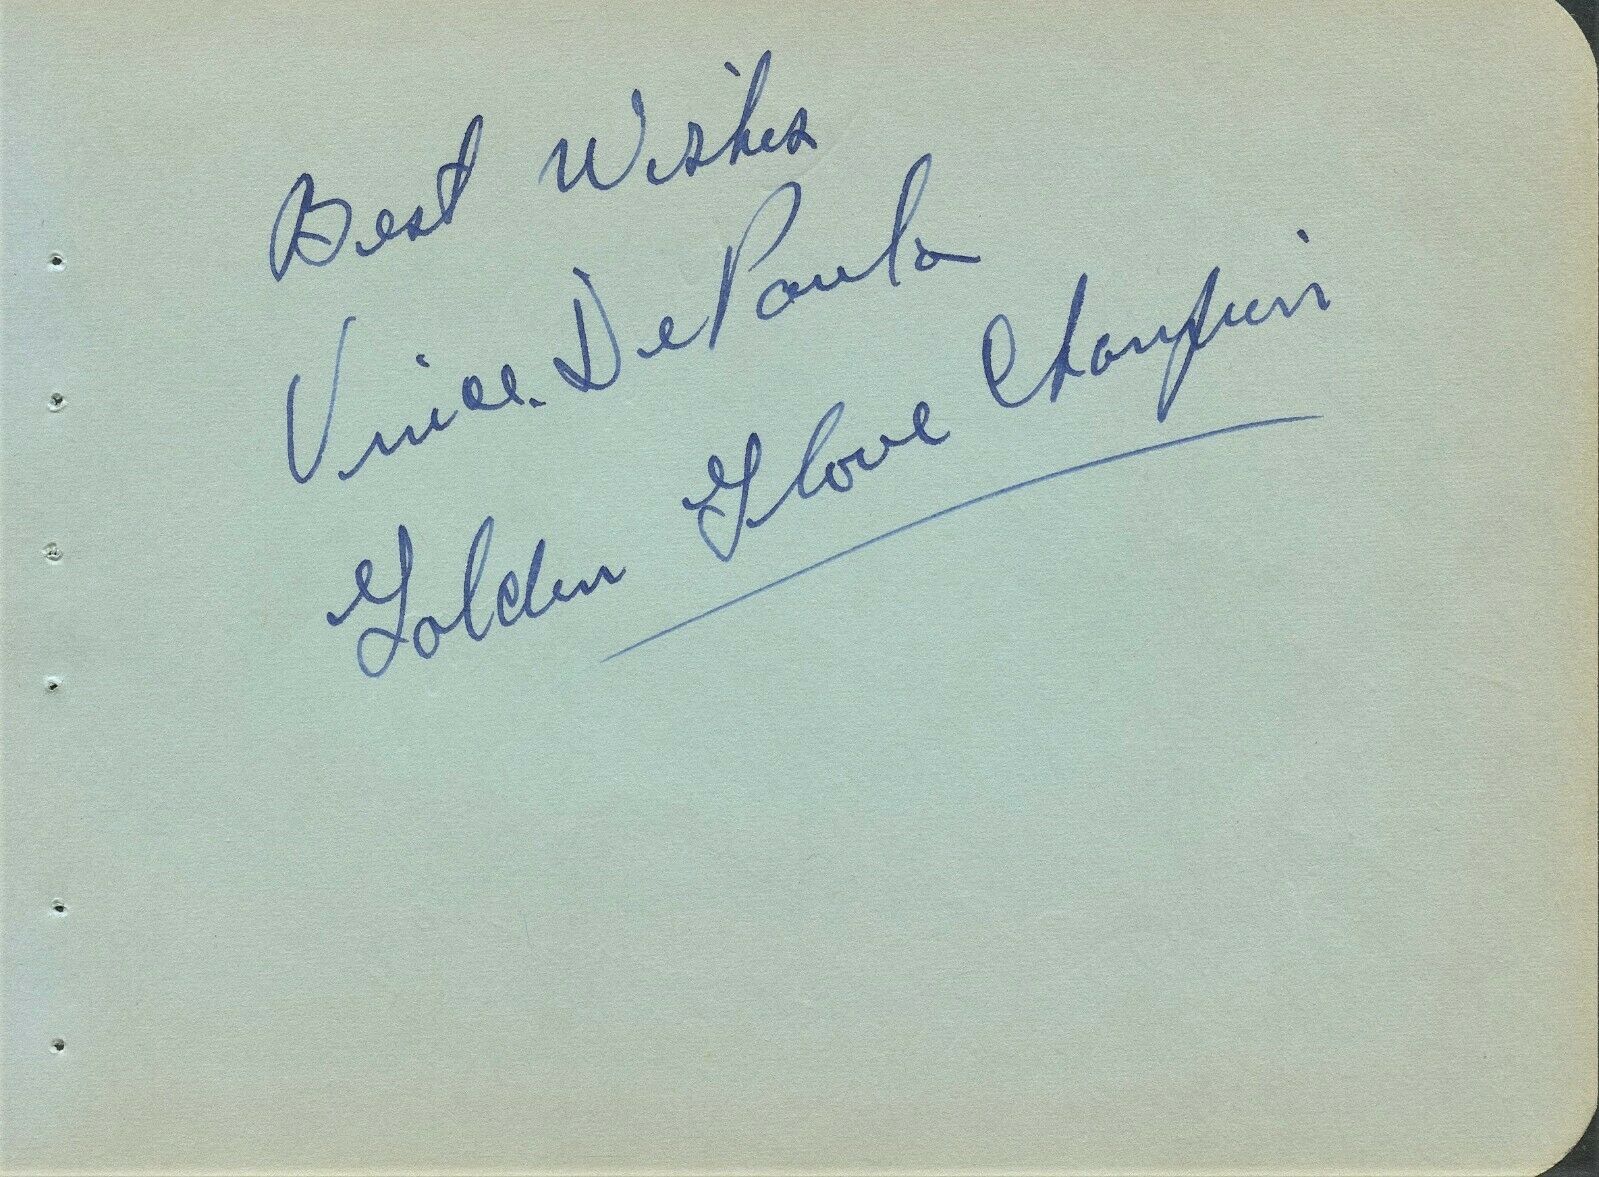 Best Wishes
Vince. DePaula
Golden Glove Champion